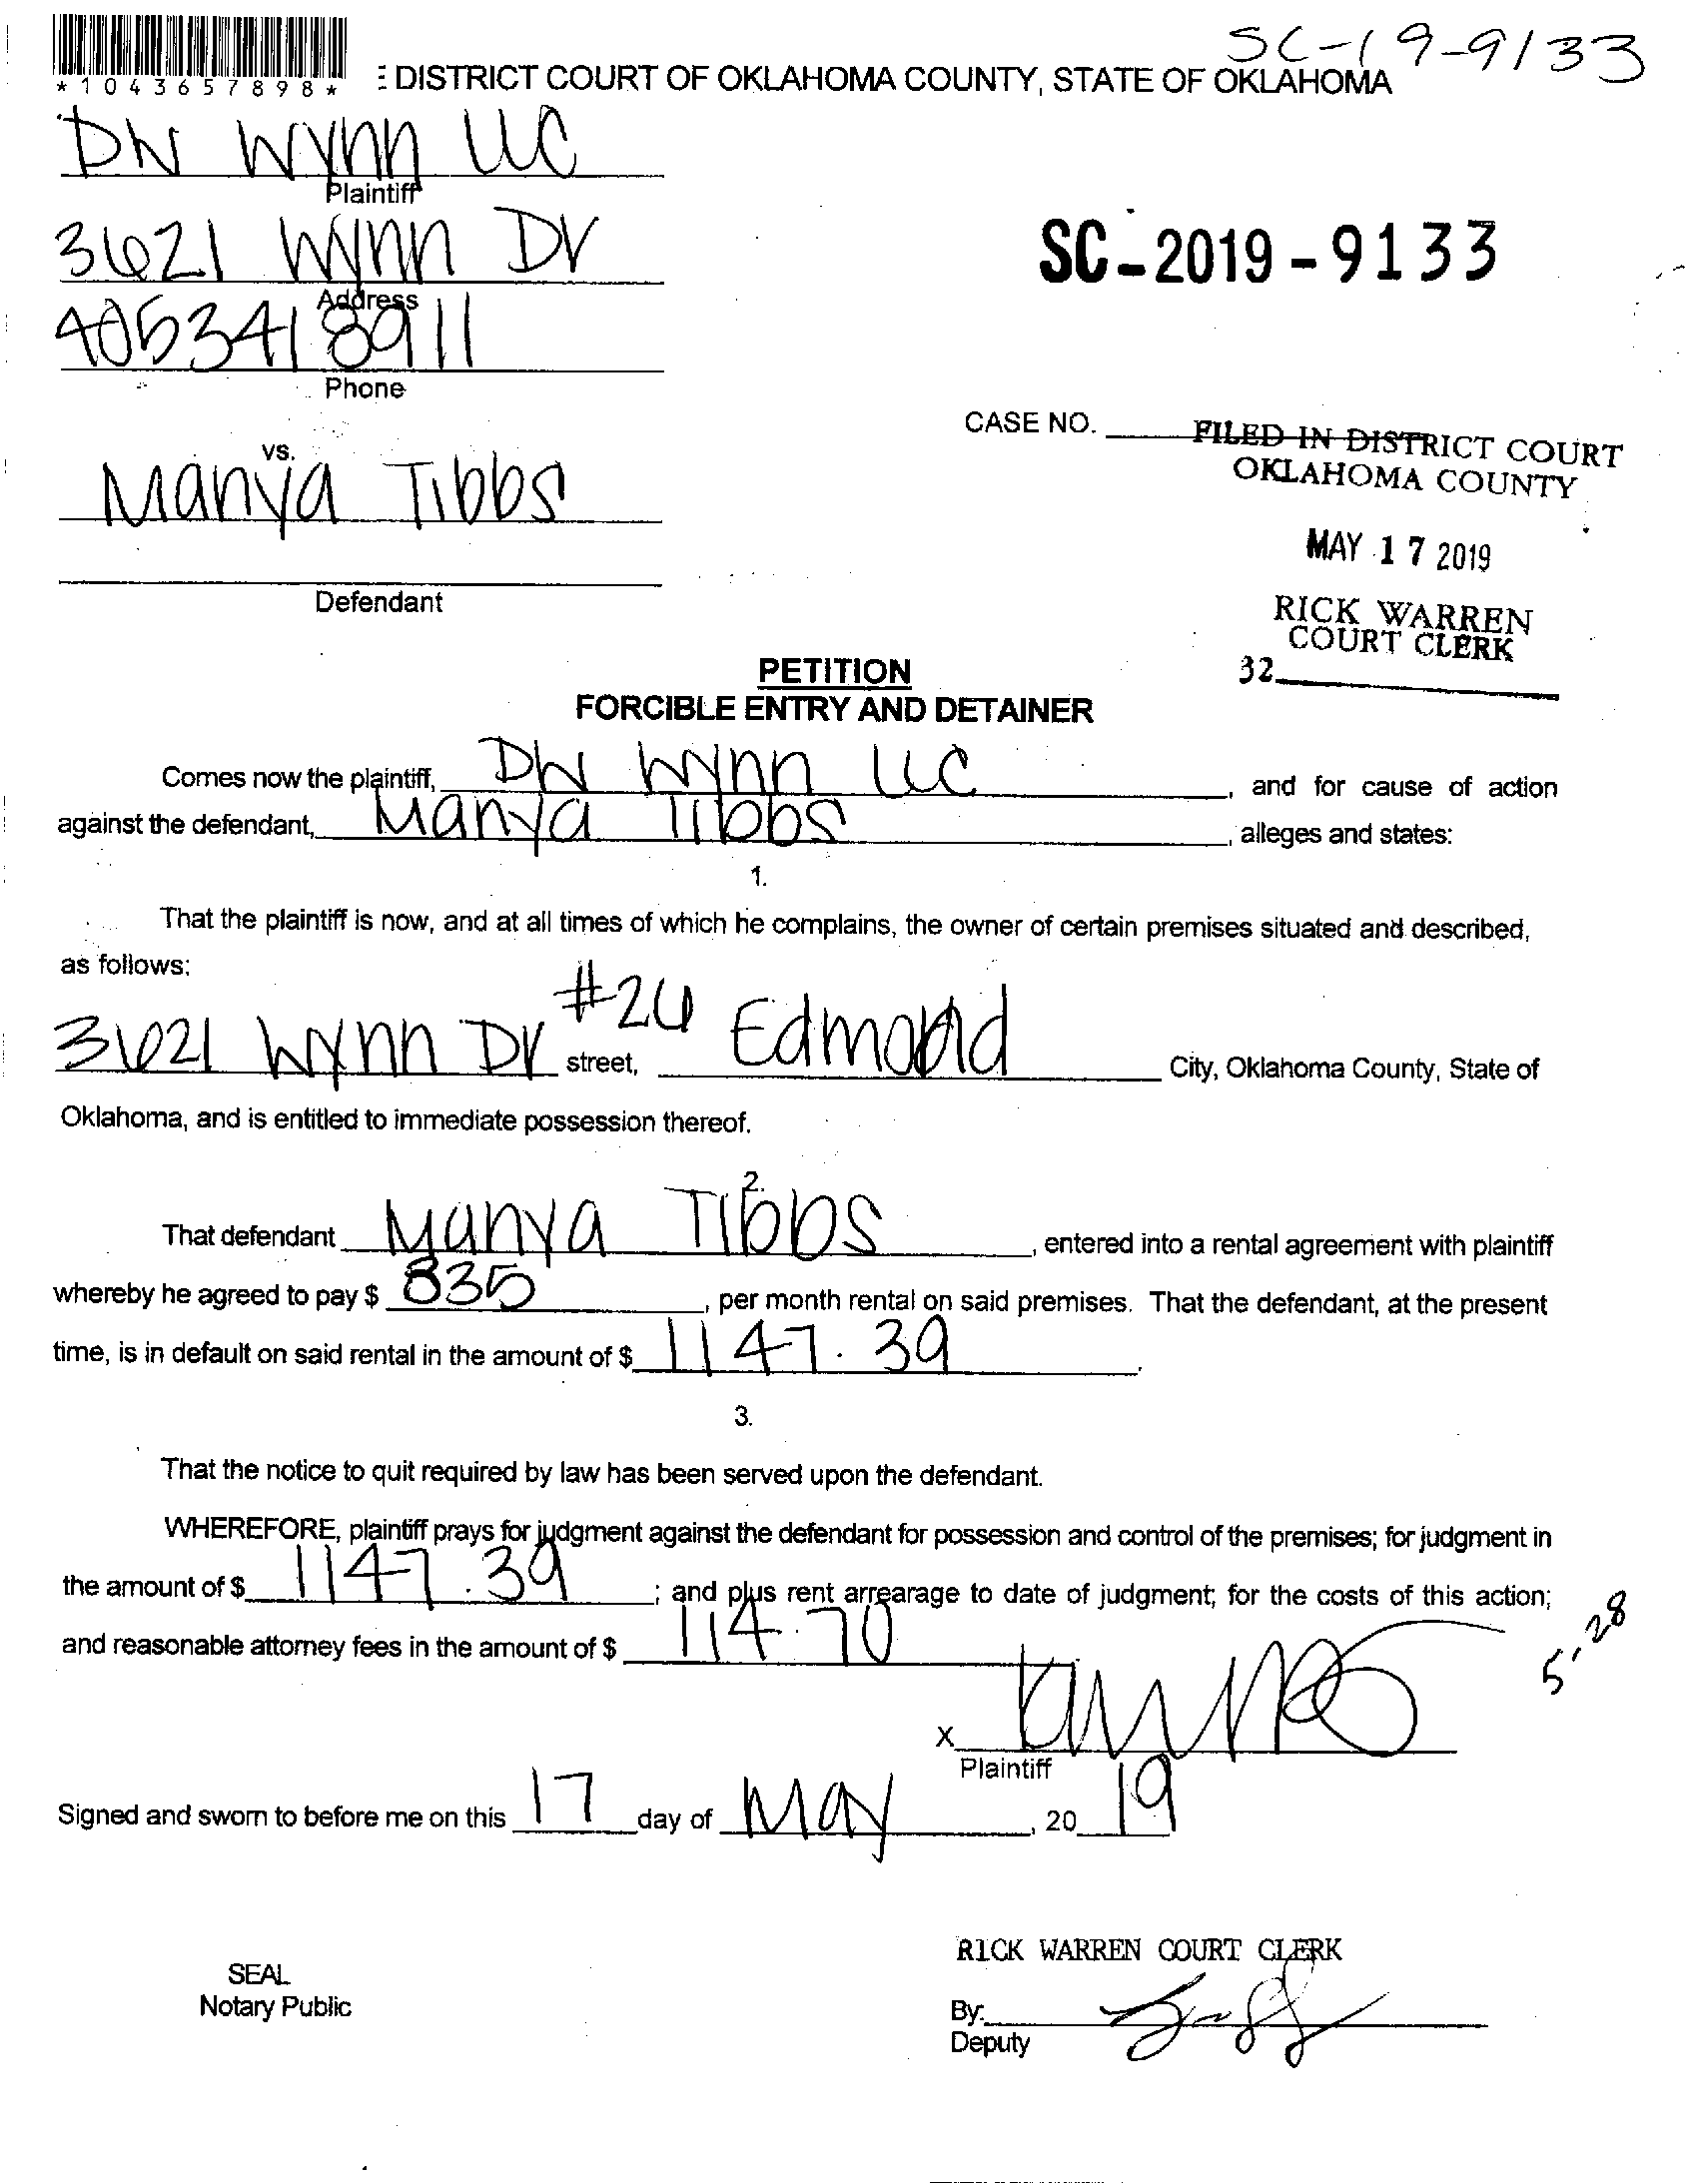 SC-19-9133
*1043657898*
E DISTRICT COURT OF OKLAHOMA COUNTY, STATE OF OKLAHOMA
DW Wynn LLC
Plaintiff
3621 Wynn Dr
Address
4053418911
Phone
SC-2019-9133
CASE NO.
FILED IN DISTRICT COURT
OKLAHOMA COUNTY
MAY 17 2019
RICK WARREN
COURT CLERK
32
vs.
Manya Tibbs
Defendant
PETITION
FORCIBLE ENTRY AND DETAINER
Comes now the plaintiff, DW Wynn LLC, and for cause of action
against the defendant, Manya Tibbs, alleges and states:
1.
That the plaintiff is now, and at all times of which he complains, the owner of certain premises situated and described,
as follows:
3621 Wynn Dr #26 street, Edmond City, Oklahoma County, State of
Oklahoma, and is entitled to immediate possession thereof.
2.
That defendant Manya Tibbs, entered into a rental agreement with plaintiff
whereby he agreed to pay $ 835, per month rental on said premises. That the defendant, at the present
time, is in default on said rental in the amount of $ 1147.39.
3.
That the notice to quit required by law has been served upon the defendant.
WHEREFORE, plaintiff prays for judgment against the defendant for possession and control of the premises; for judgment in
the amount of $ 1147.39; and plus rent arrearage to date of judgment; for the costs of this action;
and reasonable attorney fees in the amount of $ 114.70
5-28
X
Plaintiff
Signed and sworn to before me on this 17 day of May, 2019
RICK WARREN COURT CLERK
SEAL
Notary Public
By:
Deputy